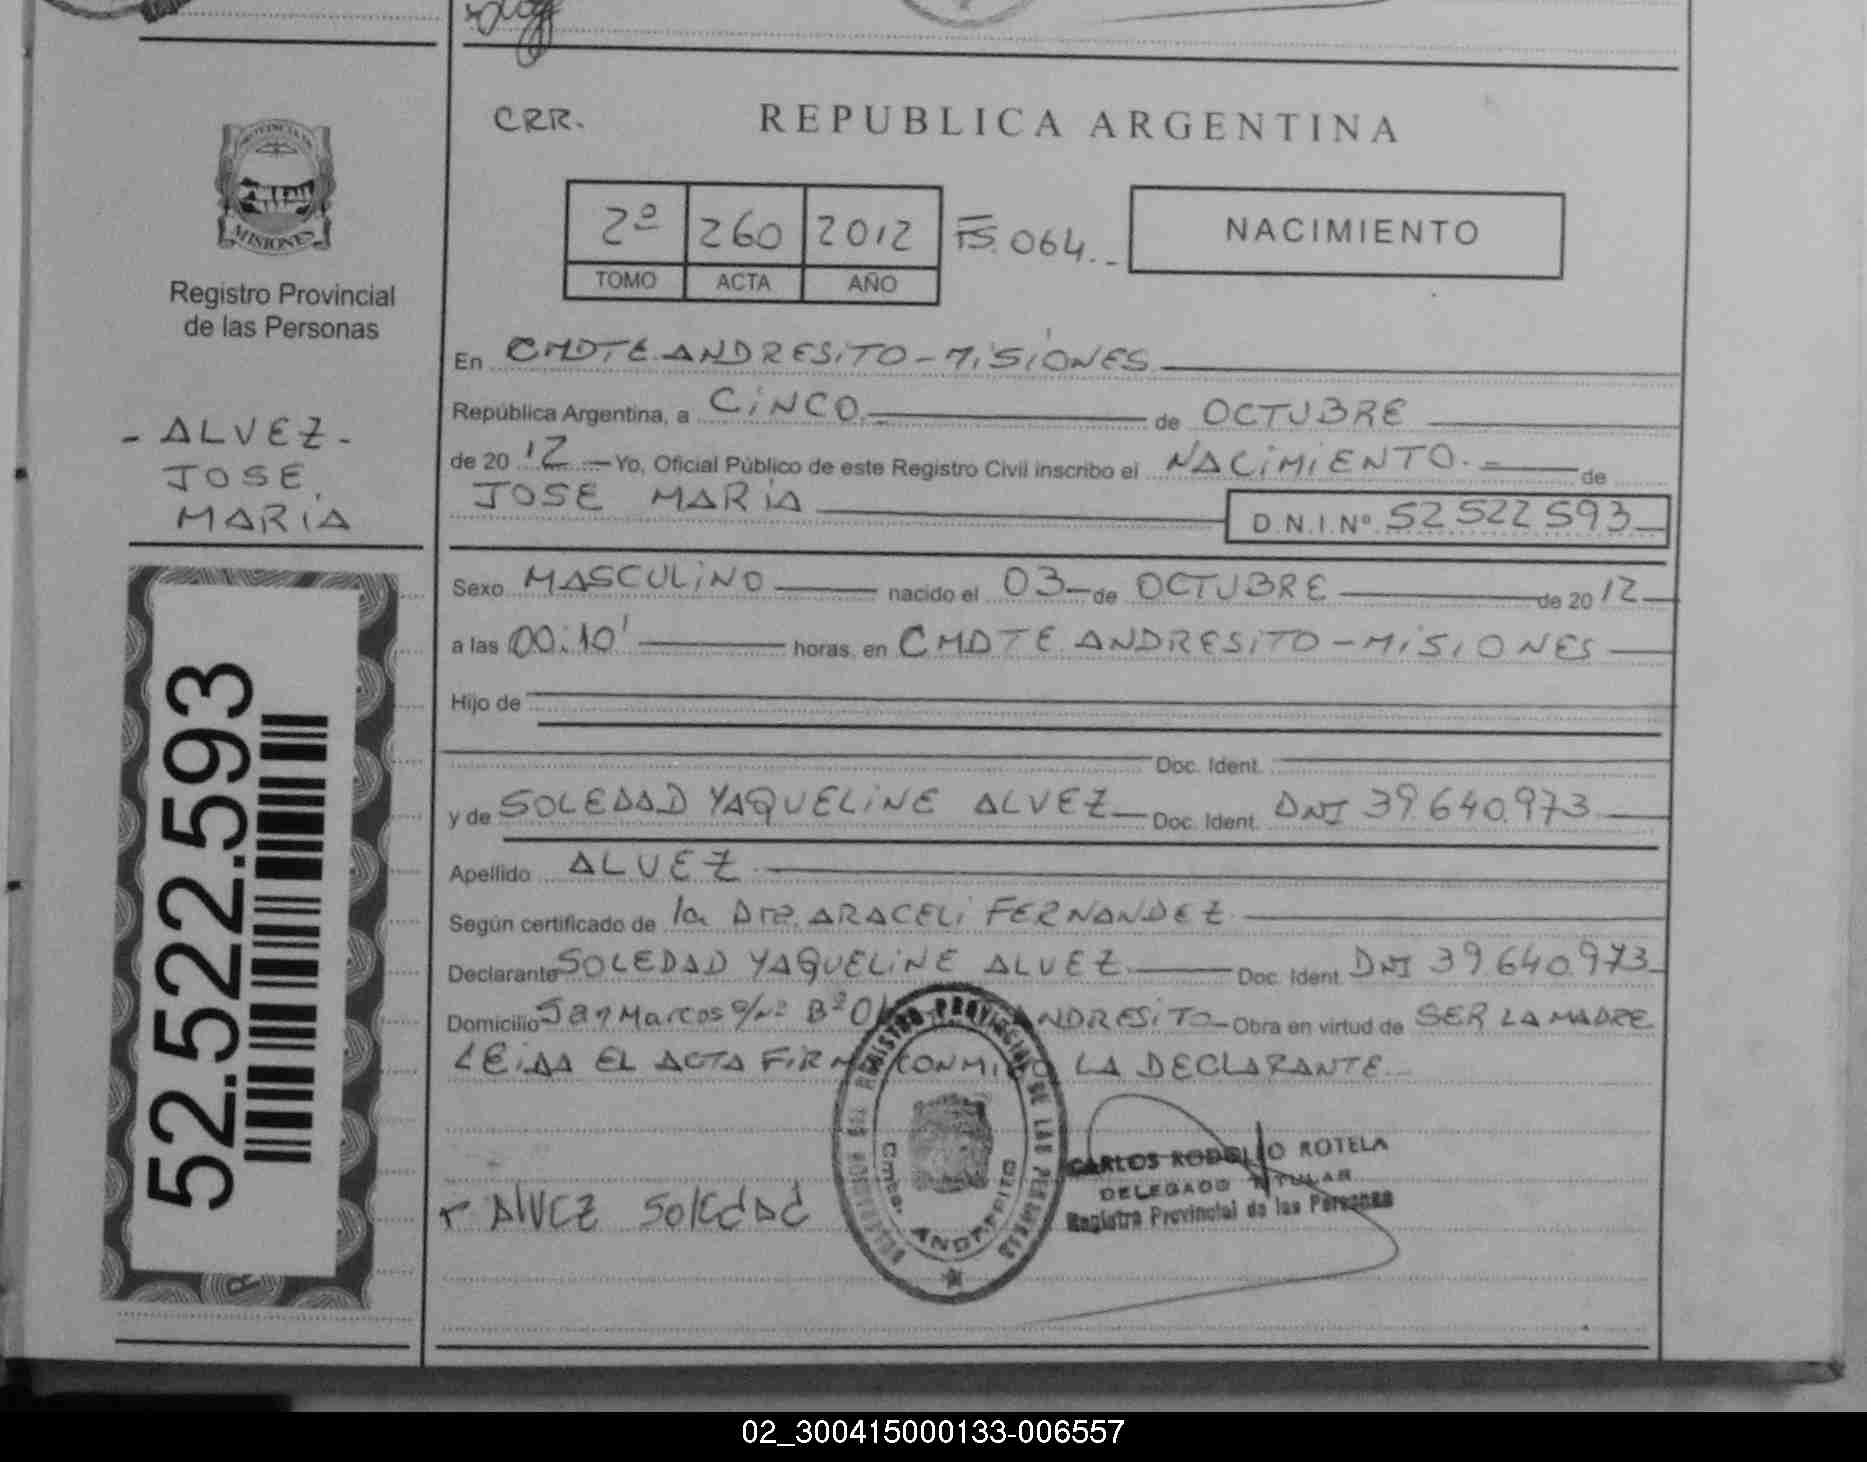 CRR.
REPUBLICA ARGENTINA
PROVINCIA DE
MISIONES
Registro Provincial
de las Personas
- ALVEZ -
JOSE
MARIA
52.522.593
2º 260 2012 FS. 064.-
TOMO ACTA AÑO
NACIMIENTO
En CMDTE. ANDRESITO - MISIONES
República Argentina, a CINCO de OCTUBRE
de 2012 Yo, Oficial Público de este Registro Civil inscribo el NACIMIENTO.- de
JOSE MARIA D.N.I.Nº 52 522 593
Sexo MASCULINO nacido el 03 de OCTUBRE de 2012
a las 00:10' horas, en CMDTE ANDRESITO - MISIONES
Hijo de
Doc. Ident.
y de SOLEDAD YAQUELINE ALVEZ Doc. Ident. DNI 39.640.973
Apellido ALVEZ
Según certificado de la Dra. ARACELI FERNANDEZ
Declarante SOLEDAD YAQUELINE ALVEZ Doc. Ident. DNI 39.640.973
Domicilio San Marcos s/nº Bº ANDRESITO Obra en virtud de SER LA MADRE
LEIDA EL ACTA FIRMA CONMIGO LA DECLARANTE.
REGISTRO PROVINCIAL DE LAS PERSONAS
Cmte. ANDRESITO
ALVEZ SolEdAd
CARLOS RODOLFO ROTELA
DELEGADO TITULAR
Registro Provincial de las Personas
02_300415000133-006557